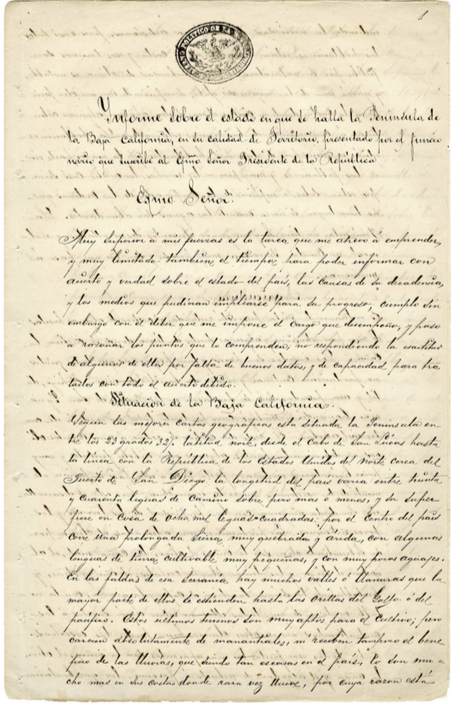 1
POLITICO DE LA
Informe sobre el estado en que se halla la Peninsula de
la Baja California, en su calidad de Territorio, presentado por el funcio
nario que suscribe al Esmo Señor Presidente de la Republica
Esmo Señor.
Muy superior á mis fuerzas es la tarea que me atrevo á emprender,
y muy limitado tambien el tiempo, para poder informar con
acierto y verdad sobre el estado del país, las causas de su decadencia,
y los medios que pudieran emplearse para su progreso; cumplo sin
embargo con el deber que me impone el cargo que desempeño, y paso
a reseñar los puntos que la comprenden, no respondiendo la esactitud
de algunos de ellos por falta de buenos datos, y de capacidad para tra
tarlos con todo el acierto debido.
Situacion de la Baja California.
Segun las mejores cartas geograficas esta situada la Peninsula en
tre los 23 grados 32½ latitud norte, desde el Cabo de San Lucas hasta
la linea con la República de los Estados Unidos del Norte cerca del
Puerto de San Diego la longitud del país varia entre treinta
y cuarenta leguas de camino sobre poco mas ó menos, y su super
ficie en cosa de ocho mil leguas cuadradas: por el centro del país
corre una prolongada sierra, muy quebrada y árida, con algunas
lenguas de tierra cultivable muy pequeñas, y con muy pocos aguajes.
En las faldas de esa Serrania hay muchos valles ó llanuras que la
mayor parte de ellos se estienden hasta las orillas del Golfo ó del
pacífico. Estos ultimos terrenos son muy aptos para el cultivo; pero
carecen absolutamente de manantiales, ni reciben tampoco el bene
ficio de las lluvias, que siendo tan escasas en el país, lo son mu
cho mas en sus costas donde rara vez llueve, por cuya razon está